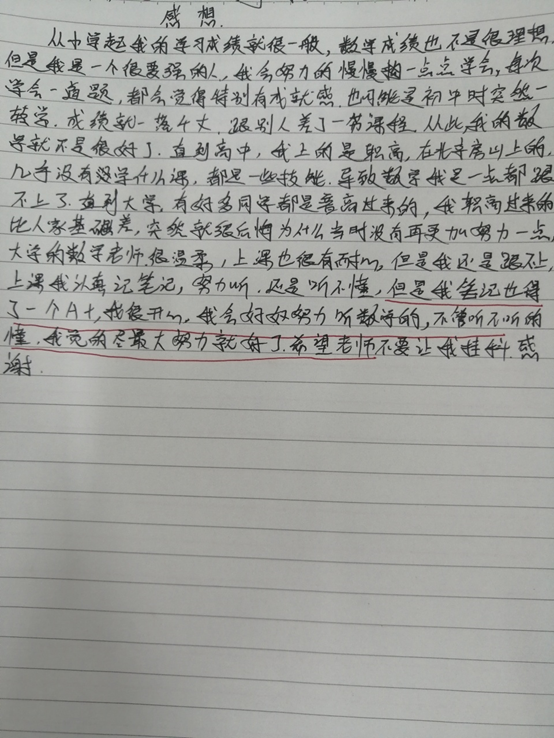 感想.
从小学起我的学习成绩就很一般,数学成绩也不是很理想.
但是我是一个很要强的人,我会努力的慢慢的一点点学会,每次
学会一道题,都会觉得特别有成就感.也可能是初中时突然一
放学.成绩就一落千丈.跟别人差了一节课程.从此,我的数
学就不是很好了.直到高中,我上的是职高,在北京房山上的,
几乎没有学什么课,都是一些技能.导致数学我是一点都跟
不上了.直到大学.有好多同学都是普高过来的,我职高过来的
比人家基础差,突然就很后悔为什么当时没有再更加努力一点,
大学的数学老师很温柔,上课也很有耐心,但是我还是跟不上,
上课我认真记笔记,努力听.还是听不懂,但是我笔记也得
了一个A+,我很开心,我会好好努力听数学的,不管听不听的
懂.我觉的尽最大努力就好了.希望老师不要让我挂科.感
谢.